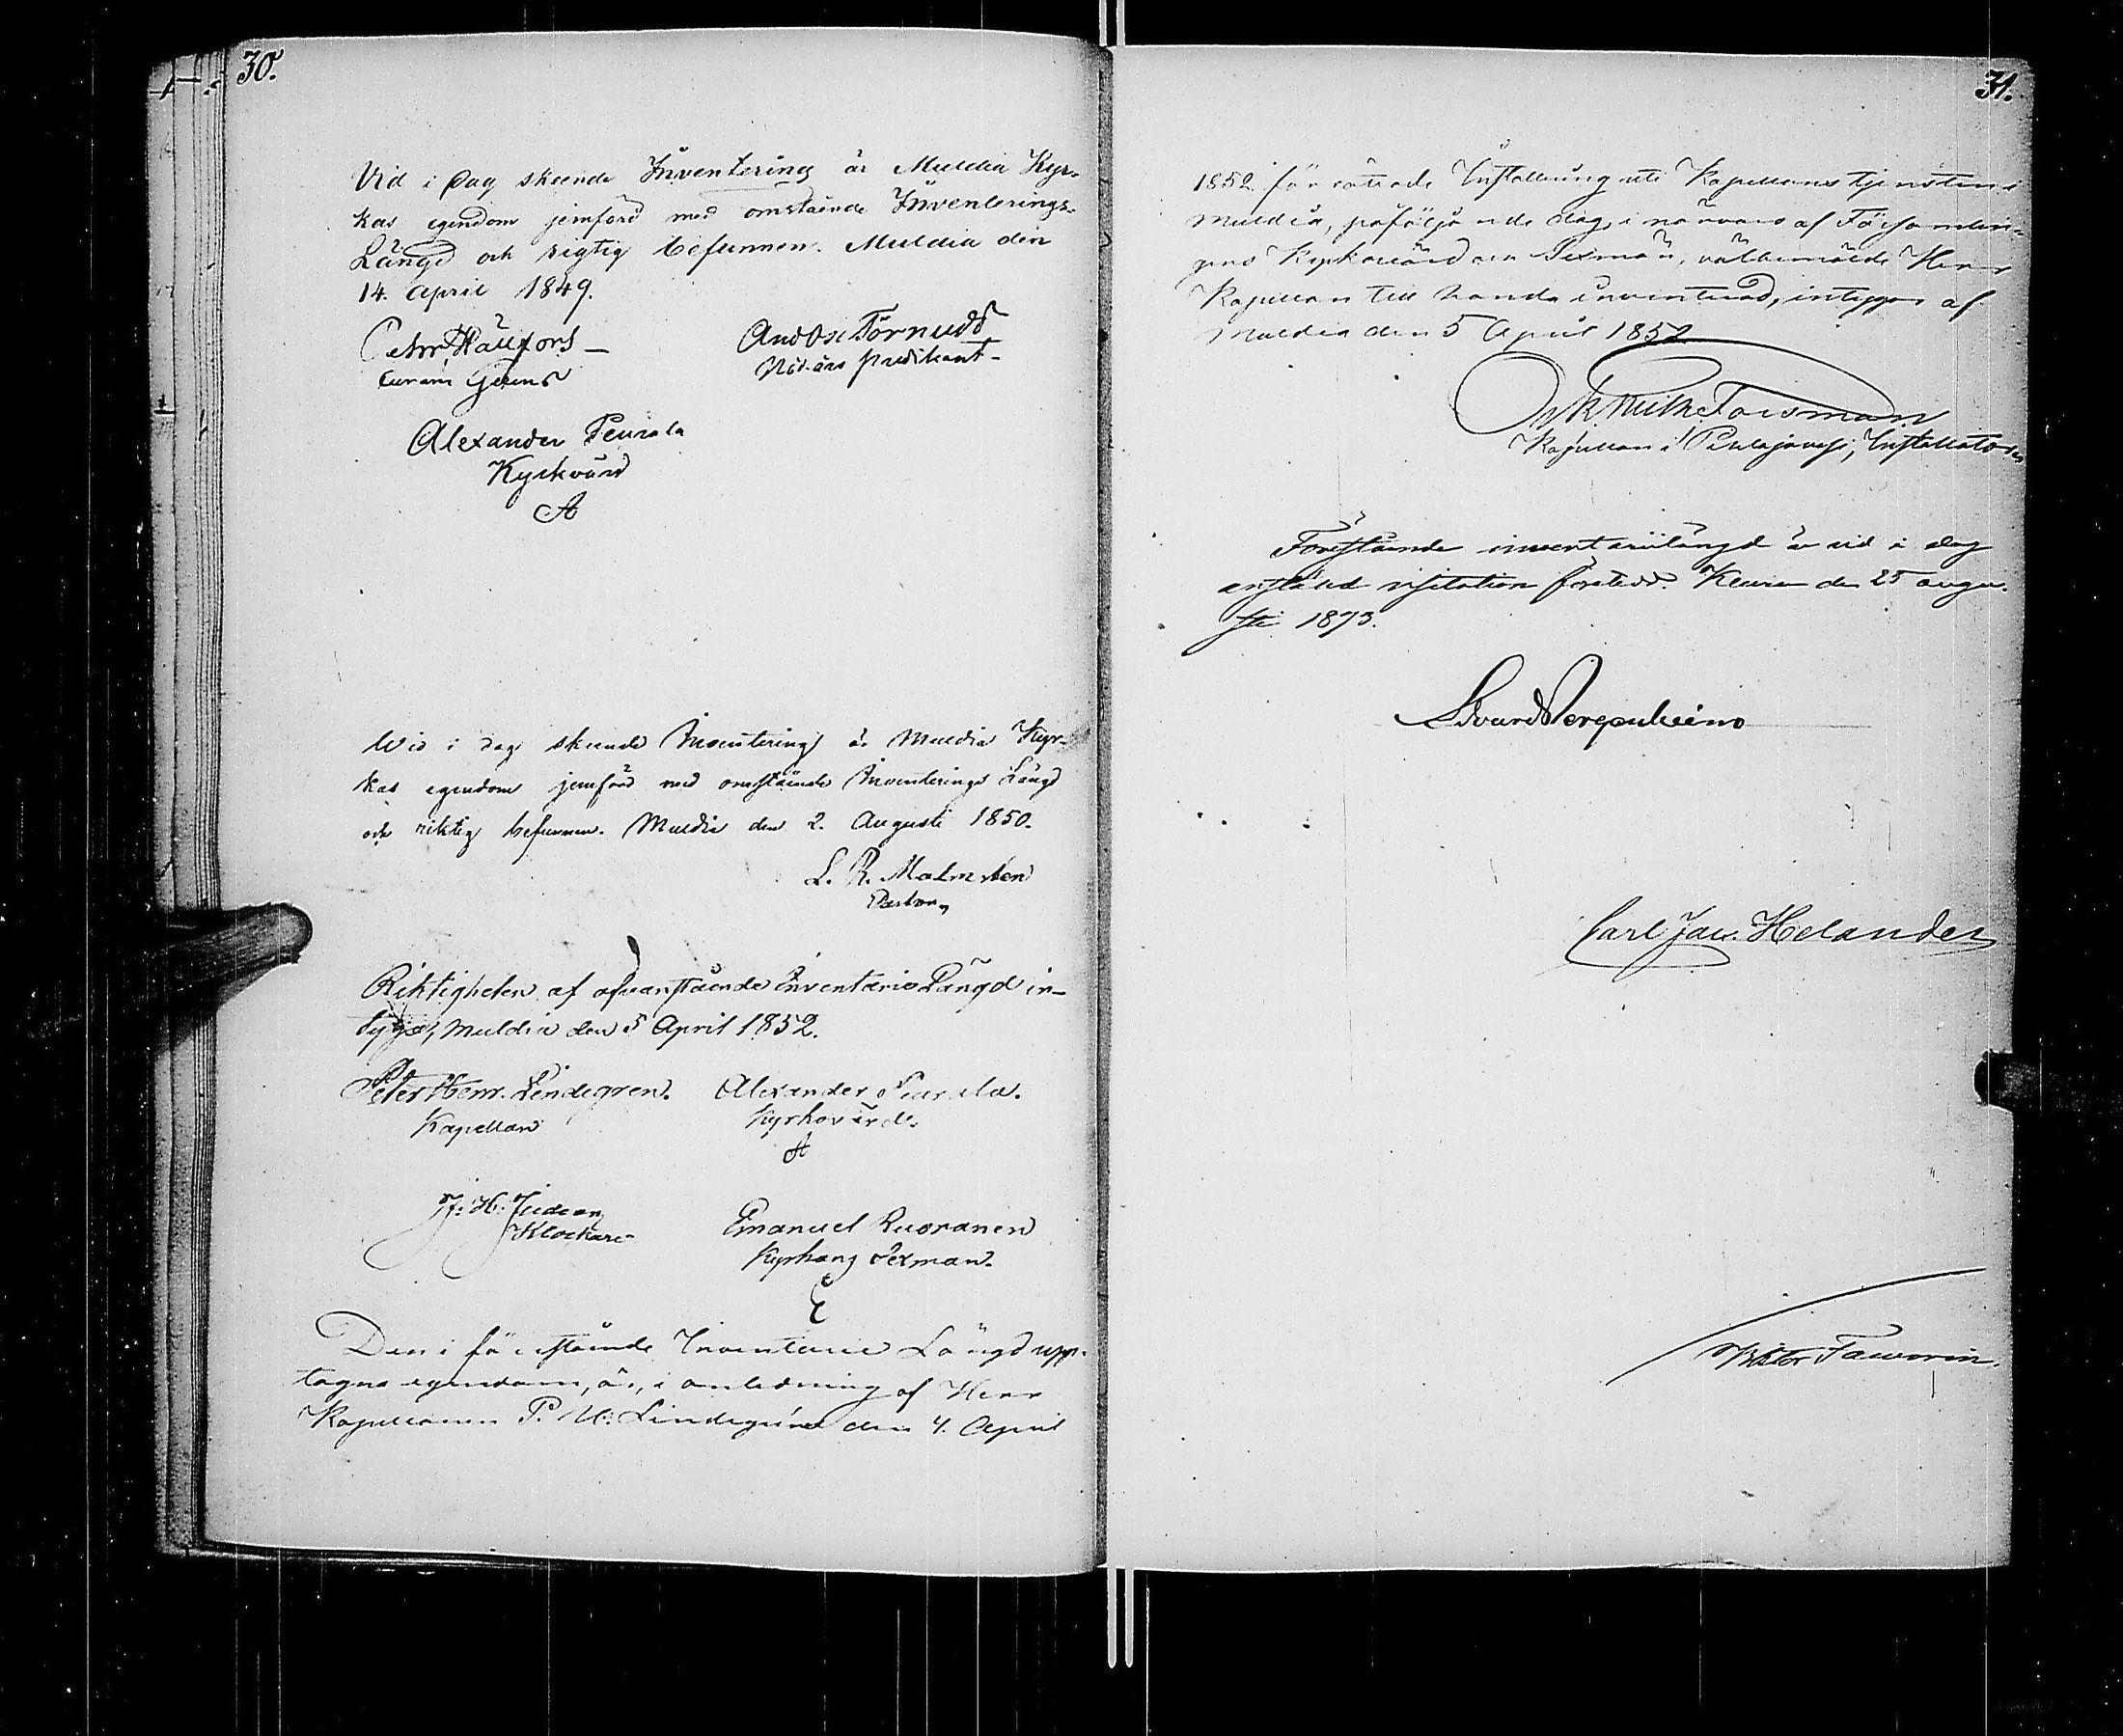 30.
Vid i Dag skeende Inventering är Muldia Kyr-
kas egendom jemförd med omstående Inventerings-
Längd och rigtig befunnen. Muldia den
14. April 1849.
Petr. Hällfors
Anders Törnudd
Nådårs predikant
Alexander Peurala
Kyrkvärd
A
Wid i dag skeende Inventering är Muldia Kyr-
kas egendom jemförd med omstående Inventerings Längd
och riktig befunnen. Muldia den 2. Augusti 1850.
L. R. Malmsten
Pastor
Riktigheten af ofvanstående Inventarie Längd in-
tyga, Muldia den 5 April 1852.
Peter Henr. Lindegren. Alexander Peurala.
Kapellan Kyrkovärd.
A
J. H. Judeen
Klockare
Emanuel Ruoranen
Kyrkans sexman.
E
Den i förestående Inventarie Längd upp-
tagna egendom, är, i anledning af Herr
Kapellanen P. H. Lindegrens den 4. April
31.
1852 förrättade Installering uti Kapellans tjensten i
Muldia, påföljande dag, i närvaro af Församlin-
gens Kyrkovärd och Sexmän, välbemälde Herr
Kapellan till handa inventerad, intygas af
Muldia den 5 April 1852
Forsman
Kapellan i Pihlajavesi, Installator
Förestående inventariilängd är vid i dag
anställd visitation företedd. Keuru den 25 augu-
sti 1873.
Edvard Bergenheim
Carl Jac. Helander
Viktor Fauvorin.